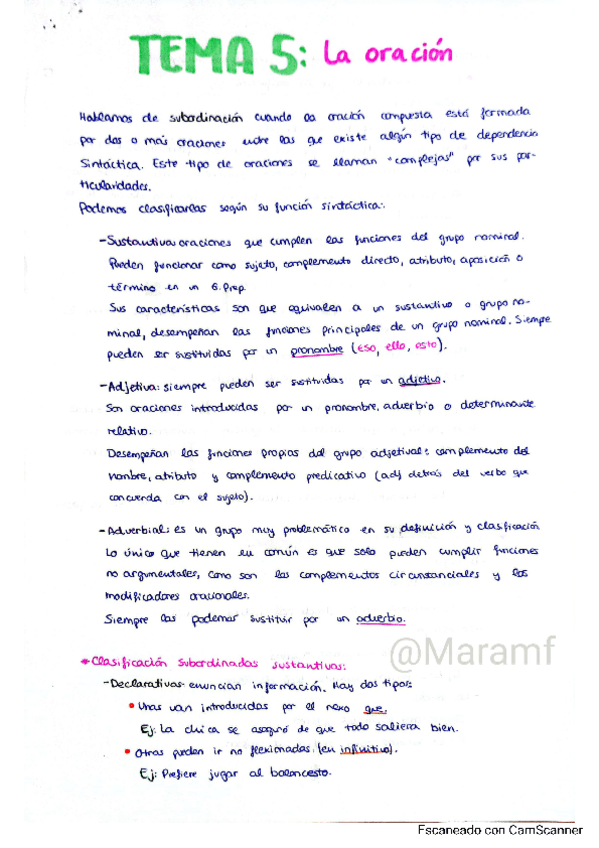 TEMA 5: La oración
Hablamos de subordinación cuando la oración compuesta está formada
por dos o más oraciones entre las que existe algún tipo de dependencia
sintáctica. Este tipo de oraciones se llaman "complejas" por sus par-
ticularidades.
Podemos clasificarlas según su función sintáctica:
-Sustantiva: oraciones que cumplen las funciones del grupo nominal.
Pueden funcionar como sujeto, complemento directo, atributo, aposición o
término en un G.Prep.
Sus características son que equivalen a un sustantivo o grupo no-
minal, desempeñan las funciones principales de un grupo nominal. Siempre
pueden ser sustituidas por un pronombre (eso, ello, esto).
-Adjetiva: siempre pueden ser sustituidas por un adjetivo.
Son oraciones introducidas por un pronombre, adverbio o determinante
relativo.
Desempeñan las funciones propias del grupo adjetival: complemento del
nombre, atributo y complemento predicativo (adj detrás del verbo que
concuerda con el sujeto).
-Adverbial: es un grupo muy problemático en su definición y clasificación
Lo único que tienen en común es que solo pueden cumplir funciones
no argumentales, como son los complementos circunstanciales y los
modificadores oracionales.
Siempre las podemos sustituir por un adverbio.
@Maramf
*Clasificación subordinadas sustantivas:
-Declarativas enuncian información. Hay dos tipos:
• Unas van introducidas por el nexo que.
Ej: La chica se aseguró de que todo saliera bien.
• Otras pueden ir no flexionadas (en infinitivo).
Ej: Prefiere jugar al baloncesto.
Escaneado con CamScanner